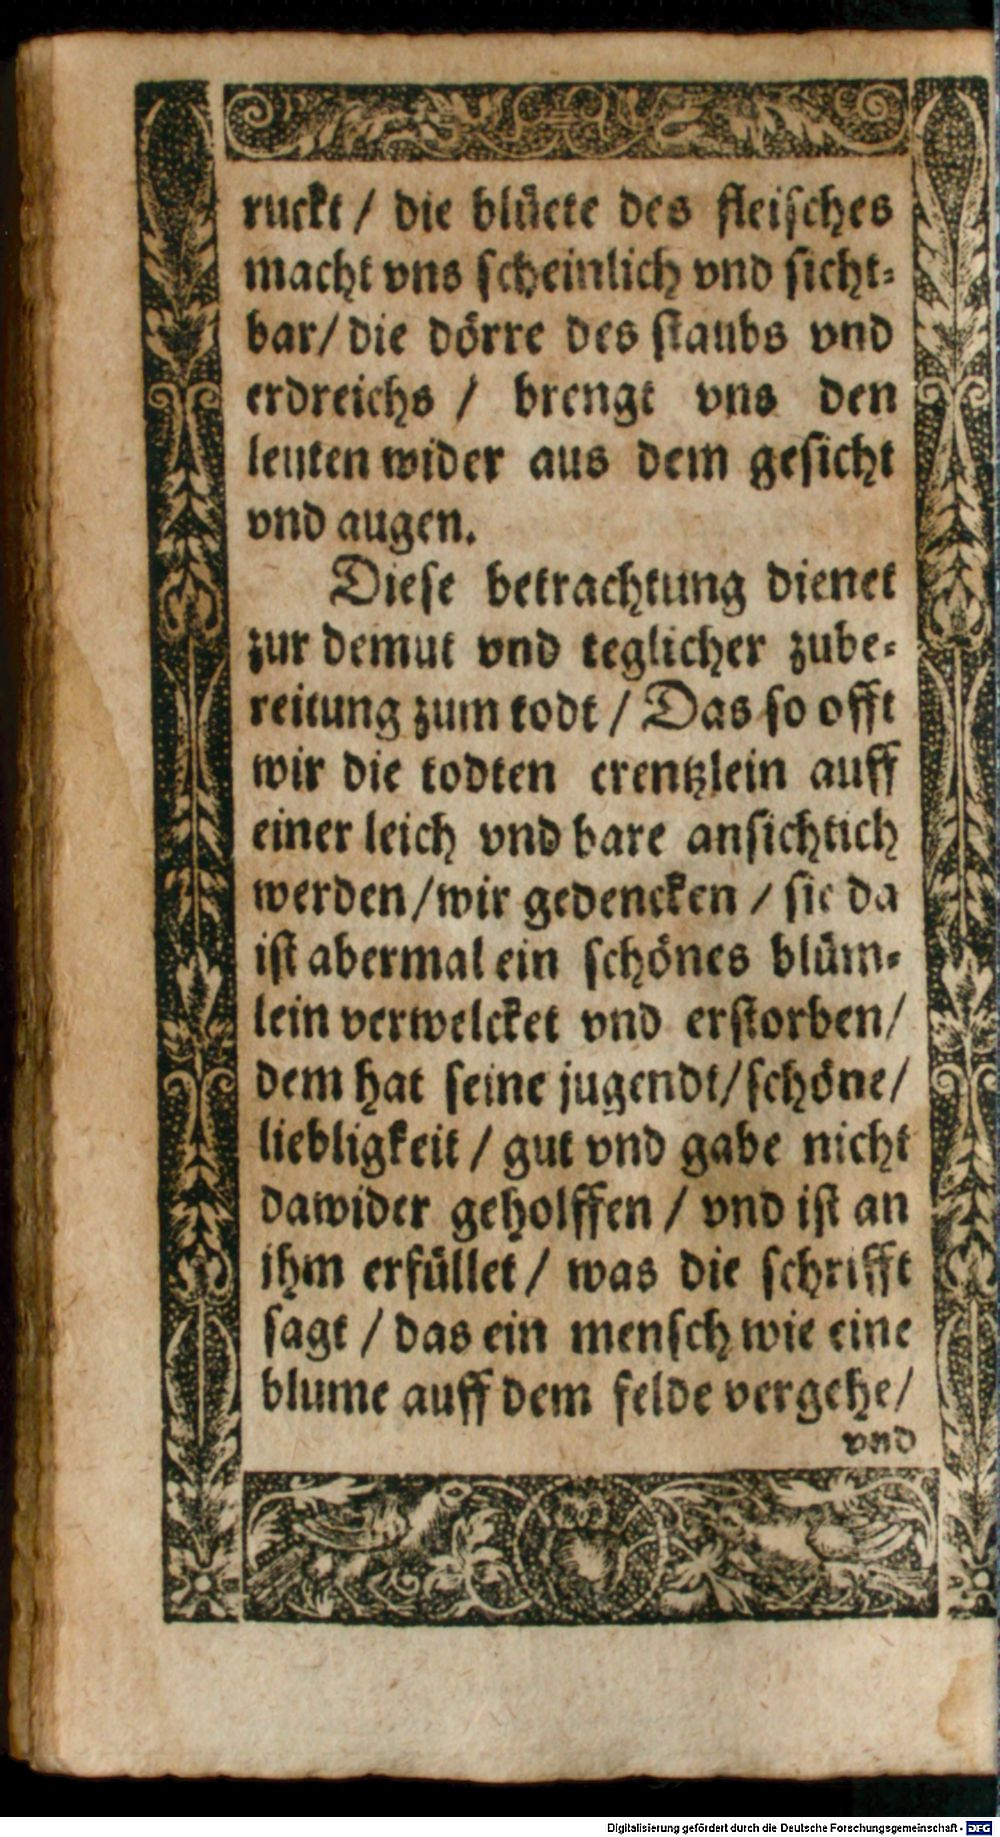 ruckt / die blüete des fleisches
macht vns scheinlich vnd sicht⸗
bar/ die dörre des staubs vnd
erdreichs / brengt vns den
leuten wider aus dem gesicht
vnd augen.
Diese betrachtung dienet
zur demut vnd teglicher zube⸗
reitung zum todt / Das so offt
wir die todten crentzlein auff
einer leich vnd bare ansichtich
werden/wir gedencken / sie da
ist abermal ein schönes blüm⸗
lein verwelcket vnd erstorben/
dem hat seine jugendt/schöne/
liebligkeit / gut vnd gabe nicht
dawider geholffen / vnd ist an
jhm erfüllet / was die schrifft
sagt / das ein mensch wie eine
blume auff dem felde vergehe/
vnd
Digitalisierung gefördert durch die Deutsche Forschungsgemeinschaft - DFG